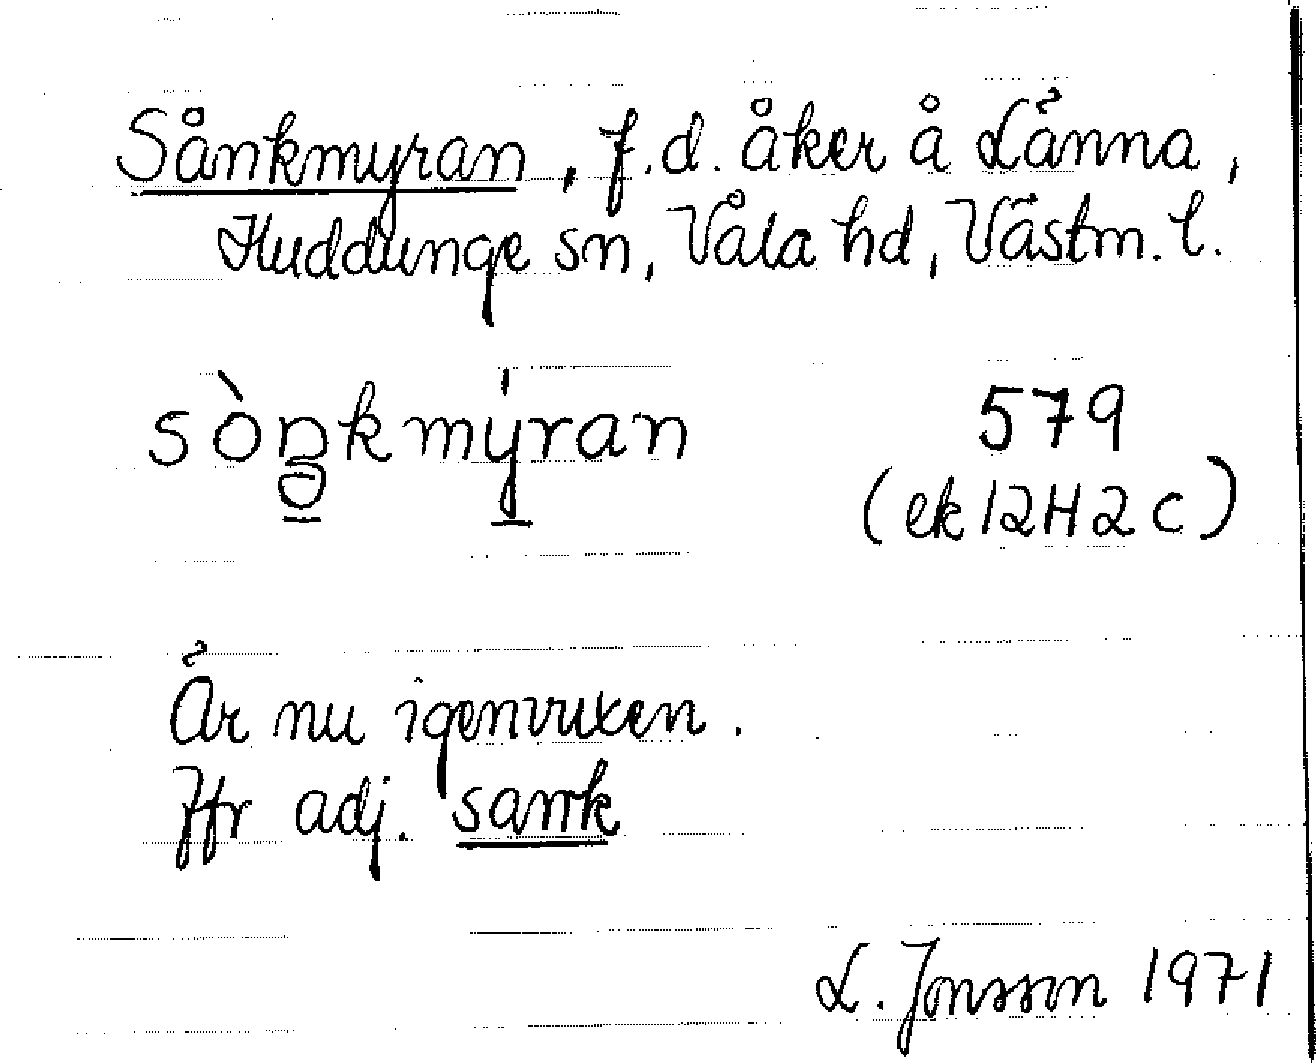 Sånkmyran, f.d. åker å Länna,
Huddunge sn, Våla hd, Västm. l.
sòŋ̲kmy̲̍ran 579
(ek 12H2c)
Är nu igenvuxen.
Jfr adj. sank
L. Jonsson 1971